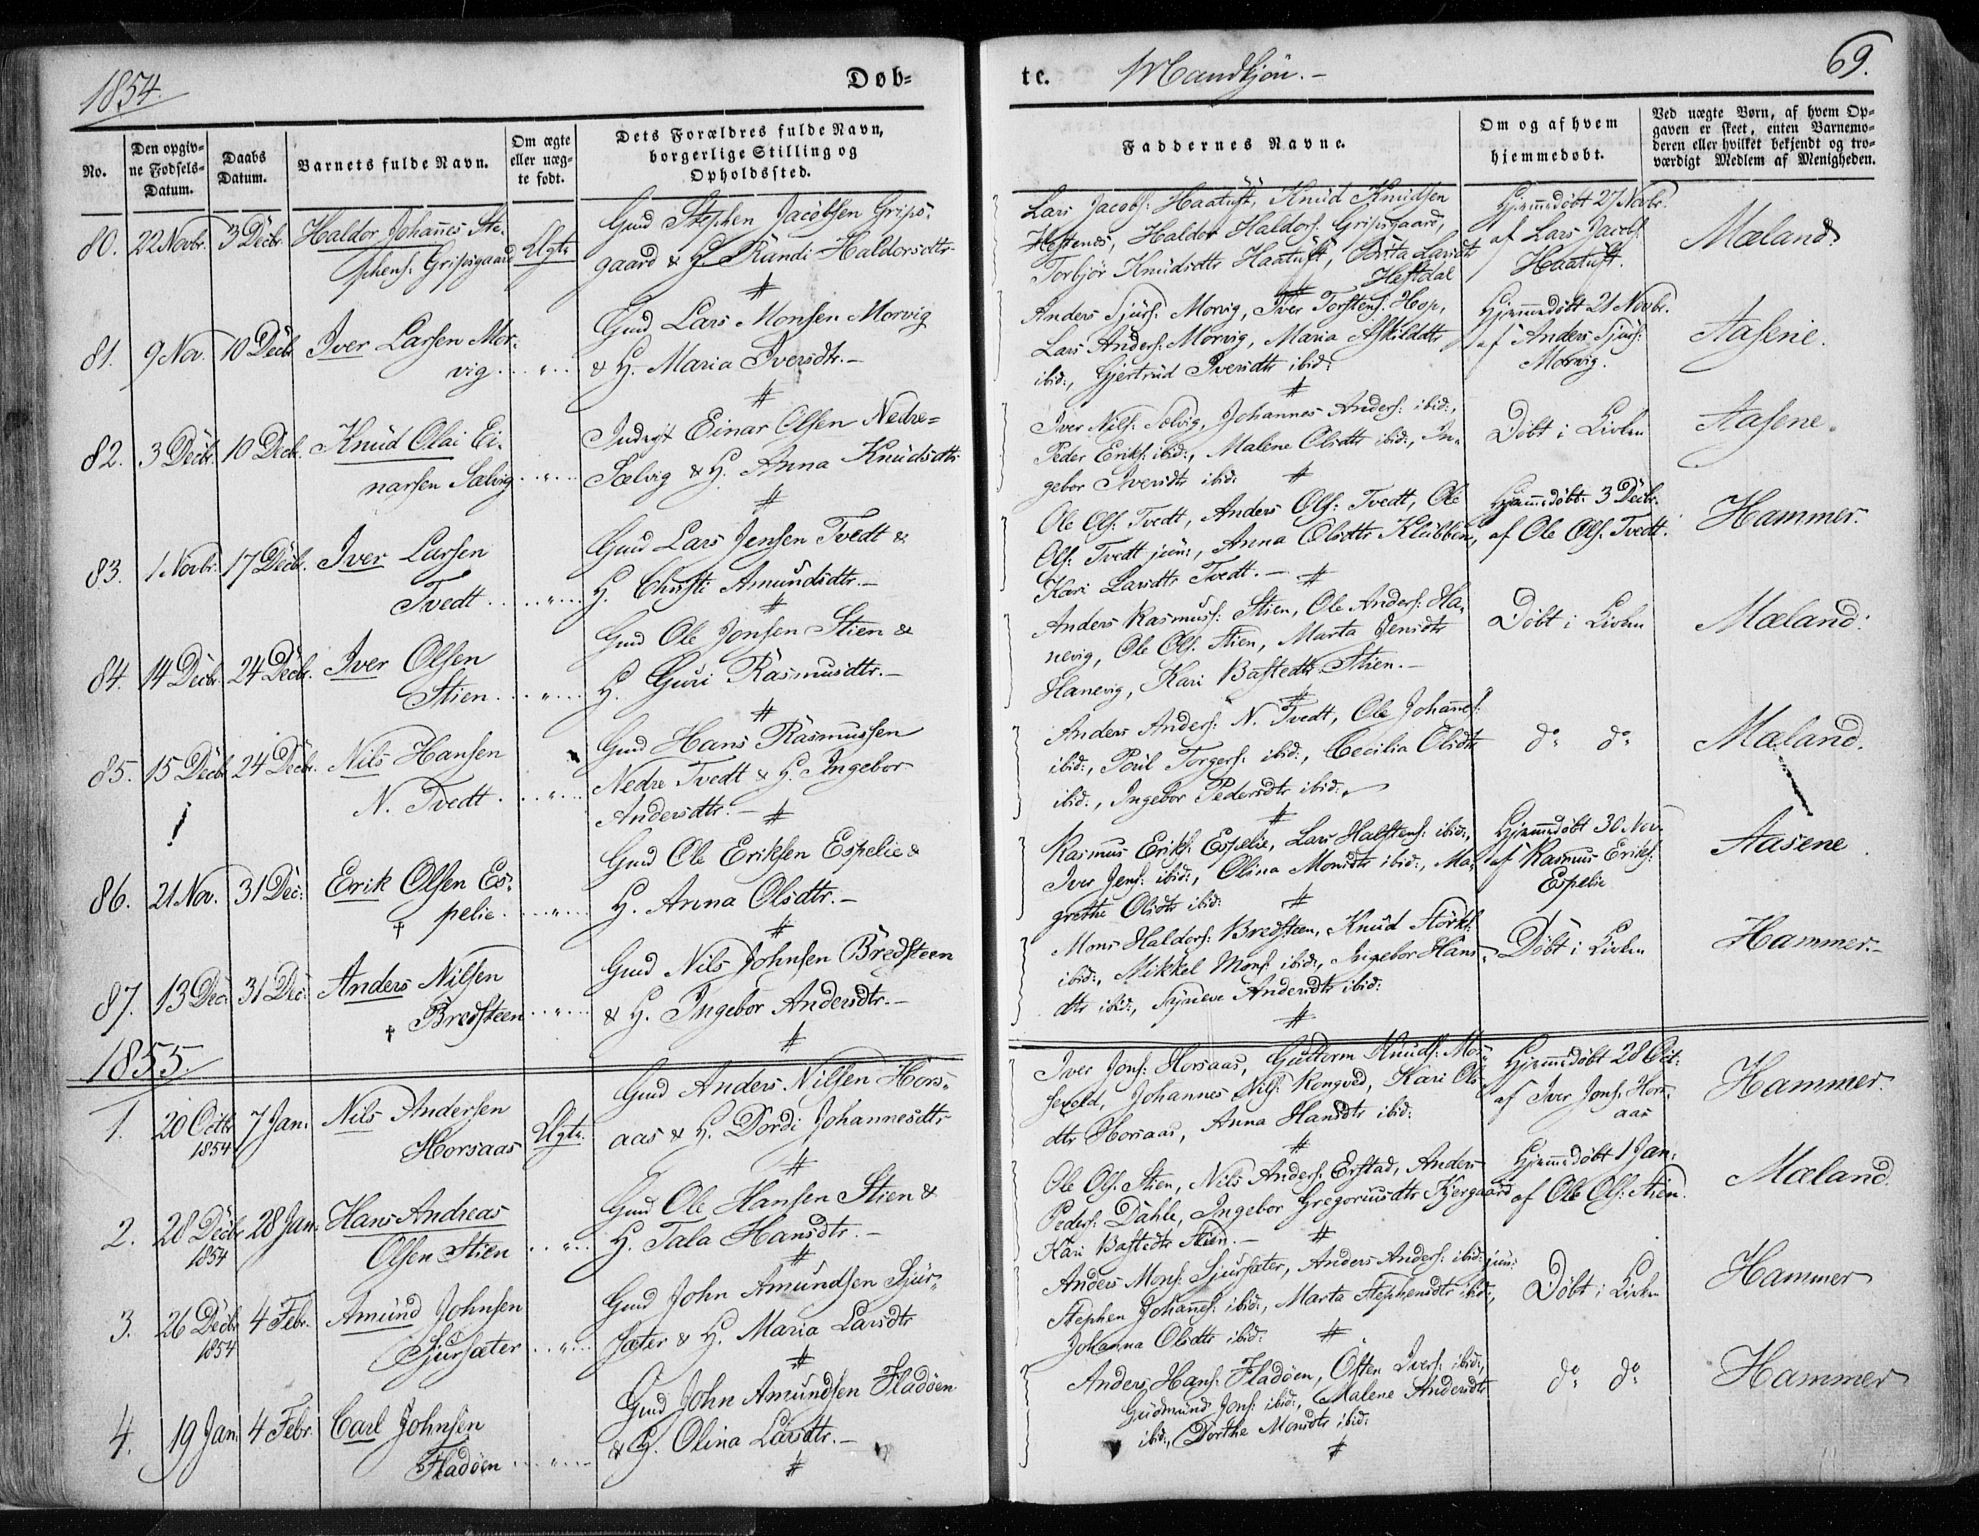 1854.
Døb-
te.
Mandkjøn. -
69.
No.
Den opgiv-
ne Fødsels-
Datum.
Daabs
Datum.
Barnets fulde Navn.
Om ægte
eller uæg-
te født.
Dets Forældres fulde Navn,
borgerlige Stilling og
Opholdssted.
Faddernes Navne.
Om og af hvem
hjemmedøbt.
Ved uægte Børn, af hvem Op-
gaven er skeet, enten Barnemo-
deren eller hvilket bekjendt og tro-
værdigt Medlem af Menigheden.
80. 22 Novbr. 3 Decbr. Haldor Johannes Ste-
phens: Gripsgaard Ægte
Gmd Stephen Jacobsen Grips-
gaard & H. Rundi Haldorsdtr
Lars Jacobs: Haatuft, Knud Knudsen
Heftenes, Haldor Haldors: Gripsgaard,
Torbjør Knudsdtr Haatuft, Brita Larsdtr
Heftdal
Hjemmedøbt 27 Novbr.
af Lars Jacobs:
Haatuft.
Mæland.
81. 9 Nov. 10 Decbr. Iver Larsen Mor-
vig
Gmd Lars Monsen Morvig
& H. Maria Iversdtr. -
Anders Sjurs: Morvig, Iver Torstens: Hop,
Lars Anders: Morvig, Maria Askildsdtr
ibid:, Gjertrud Iversdtr ibid:
Hjemmedøbt 21 Novbr.
af Anders Sjurs:
Morvig.
Aasene.
82. 3 Decbr. 10 Decbr. Knud Olai Ei-
narsen Sælvig
Inderst Einar Olsen Nedre-
Sælvig & H. Anna Knudsdtr
Iver Nils: Sælvig, Johannes Anders: ibid:,
Peder Eriks: ibid:, Malene Olsdtr ibid:, In-
gebor Iversdtr ibid:
Døbt i Kirken
Aasene.
83. 1 Novbr. 17 Decbr. Iver Larsen
Tvedt
Gmd Lars Jensen Tvedt &
H. Christi Amundsdtr. -
Ole Ols: Tvedt, Anders Ols: Tvedt, Ole
Ols: Tvedt jun:, Anna Olsdtr Klubben,
Kari Larsdtr Tvedt. -
Hjemmedøbt 3 Decbr.
af Ole Ols: Tvedt.
Hammer.
84. 14 Decbr. 24 Decbr. Iver Olsen
Stien
Gmd Ole Jonsen Stien &
H. Guri Rasmusdtr. -
Anders Rasmuss: Stien, Ole Anders: Ha-
nevig, Ole Ols: Stien, Marta Jensdtr
Hanevig, Kari Bastedtr Stien. -
Døbt i Kirken
Mæland.
85. 15 Decbr. 24 Decbr. Nils Hansen
N. Tvedt
Gmd Hans Rasmussen
Nedre Tvedt & H. Ingebor
Andersdtr. -
Anders Anders: N. Tvedt, Ole Johannes:
ibid:, Poul Torgers: ibid:, Cecilia Olsdtr
ibid:, Ingebor Pedersdtr ibid:
do do
Mæland.
86. 21 Nov. 31 Dec: Erik Olsen Es-
pelie.
Gmd Ole Eriksen Espelie &
H. Anna Olsdtr. -
Rasmus Eriks: Espelie, Lars Halstens: ibid:,
Iver Jens: ibid:, Olina Monsdtr ibid:, Ma-
grethe Olsdtr ibid:
Hjemmedøbt 30 Nov.
af Rasmus Eriks:
Espelie
Aasene
87. 13 Dec: 31 Dec: Anders Nilsen
Bredsteen
Gmd Nils Johnsen Bredsteen
& H. Ingebor Andersdtr. -
Mons Haldors: Bredsteen, Knud Størks:
ibid:, Mikkel Mons: ibid:, Ingebor Hans-
dtr ibid:, Syneve Andersdtr ibid:
Døbt i Kirken
Hammer. -
1855.
1. 20 Octbr 1854 7 Jan: Nils Andersen
Horsaas Ægte
Gmd Anders Nilsen Hors-
aas & H. Dordi Johannesdtr
Iver Jons: Horsaas, Guttorm Knuds: Mos-
sevold, Johannes Nils: Rongved, Kari Ols-
dtr Horsaas, Anna Hansdtr ibid:
Hjemmedøbt 28 Oct:
af Iver Jons: Hors-
aas
Hammer.
2. 28 Decbr 1854 28 Jan: Hans Andreas
Olsen Stien
Gmd Ole Hansen Stien &
H. Tala Hansdtr. -
Ole Ols: Stien, Nils Anders: Erstad, Anders
Peders: Dahle, Ingebor Gregoriusdtr Kjergaard
Kari Bastedtr Stien. -
Hjemmedøbt 1 Jan:
af Ole Ols: Stien.
Mæland.
3. 26 Decbr 1854 4 Febr. Amund Johnsen
Sjursæter
Gmd John Amundsen Sjur-
sæter & H. Maria Larsdtr
Anders Mons: Sjursæter, Anders Anders: ibid: jun:
Stephen Johannes: ibid:, Marta Stephensdtr ibid:,
Johanna Olsdtr ibid:
Døbt i Kirken
Hammer
4. 19 Jan: 4 Febr. Carl Johnsen
Fladøen
Gmd John Amundsen Fladøen
& H. Olina Larsdtr. -
Anders Hans: Fladøen, Østen Ivers: ibid:,
Gudmund Jons: ibid:, Malene Andersdtr
ibid:, Dorthe Monsdtr ibid:
do do
Hammer